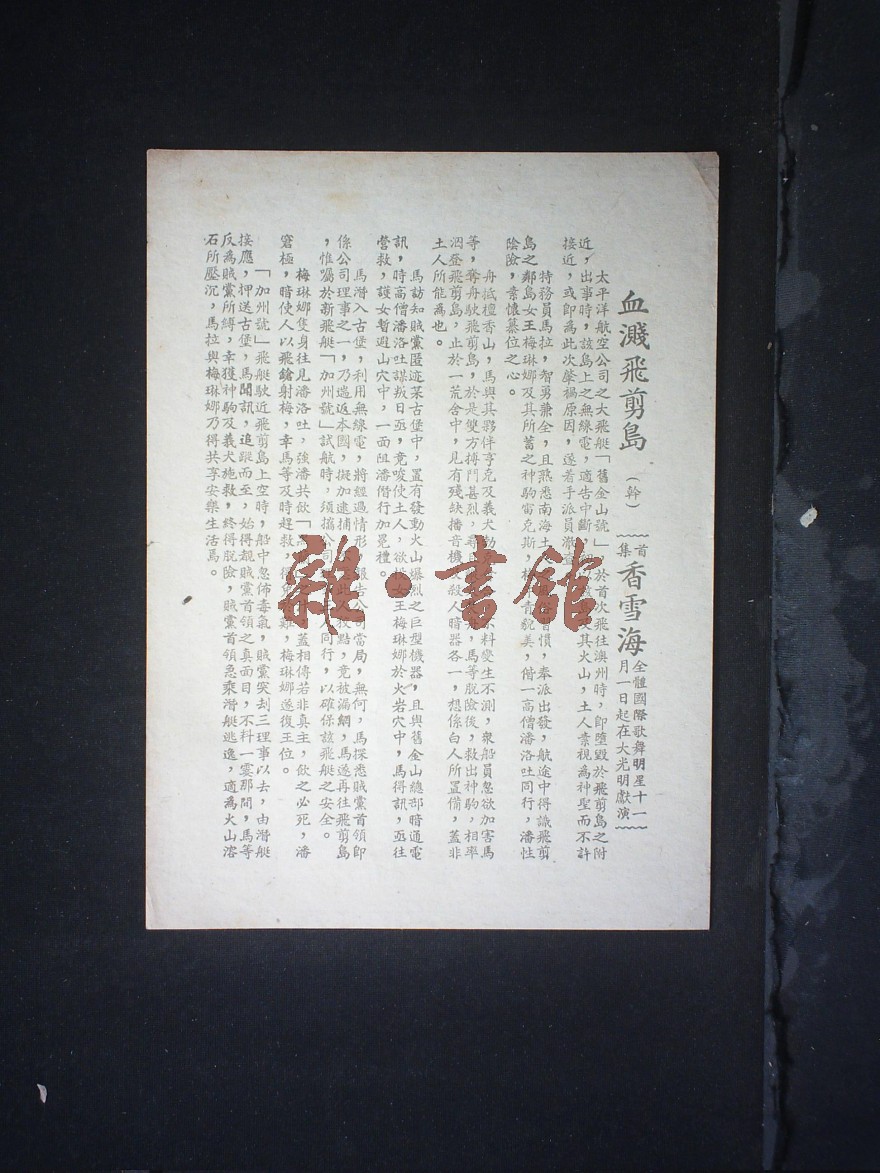 血濺飛剪島
（幹）
首集
香雪海
全體國際歌舞明星十一
月一日起在大光明獻演
太平洋航空公司之大飛艇「舊金山號」，於首次飛往澳州時，即墮毀於飛剪島之附
近，出事時，該島上之無線電，適告中斷，
其火山，土人素視為神聖而不許
接近，或即為此次肇禍原因，遂着手派員澈
特務員馬拉，智勇兼全，且熟悉南海土
習慣，奉派出發，航途中得識飛剪
島之鄰島女王梅琳娜及其所蓄之神駒雷克斯，
青貌美，偕一高僧潘洛吐同行，潘性
陰險，素懷纂位之心。
舟抵檀香山，馬與其夥伴亨克及義犬
不料變生不測，衆船員忽欲加害馬
等，奪舟駛飛剪島，於是雙方搏鬥甚烈，
馬等脫險後，救出神駒，相率
泅登飛剪島，止於一荒舍中，見有殘缺播音機
殺人暗器各一，想係白人所置備，蓋非
土人所能為也。
馬訪知賊黨匿迹某古堡中，置有發動火山爆烈之巨型機器，且與舊金山總部暗通電
訊，時高僧潘洛吐謀叛日亟，竟唆使土人，欲
女王梅琳娜於火岩穴中，馬得訊，亟往
營救，護女暫避山穴中，一面阻潘僭行加冕禮。
馬潛入古堡，利用無線電，將經過情形，報告公司當局，無何，馬探悉賊黨首領即
係公司理事之一，乃遄返本國，擬加逮捕，
狡黠，竟被漏網，馬遂再往飛剪島
，惟囑於新飛艇「加州號」試航時，須擕公司
同行，以確保該飛艇之安全。
梅琳娜隻身往見潘洛吐，強潘共飲「
蓋相傳若非真主，飲之必死，潘
窘極，暗使人以飛鎗射梅，幸馬等及時趕救，得
難，梅琳娜遂復王位。
「加州號」飛艇駛近飛剪島上空時，船中忽佈毒氣，賊黨突刦三理事以去，由潛艇
接應，押送古堡，馬聞訊，追蹤而至，始得覩賊黨首領之真面目，不料一霎那間，馬等
反為賊黨所縛，幸獲神駒及義犬施救，終得脫險，賊黨首領急乘潛艇逃逸，適為火山溶
石所壓沉，馬拉與梅琳娜乃得共享安樂生活焉。
雜·書館